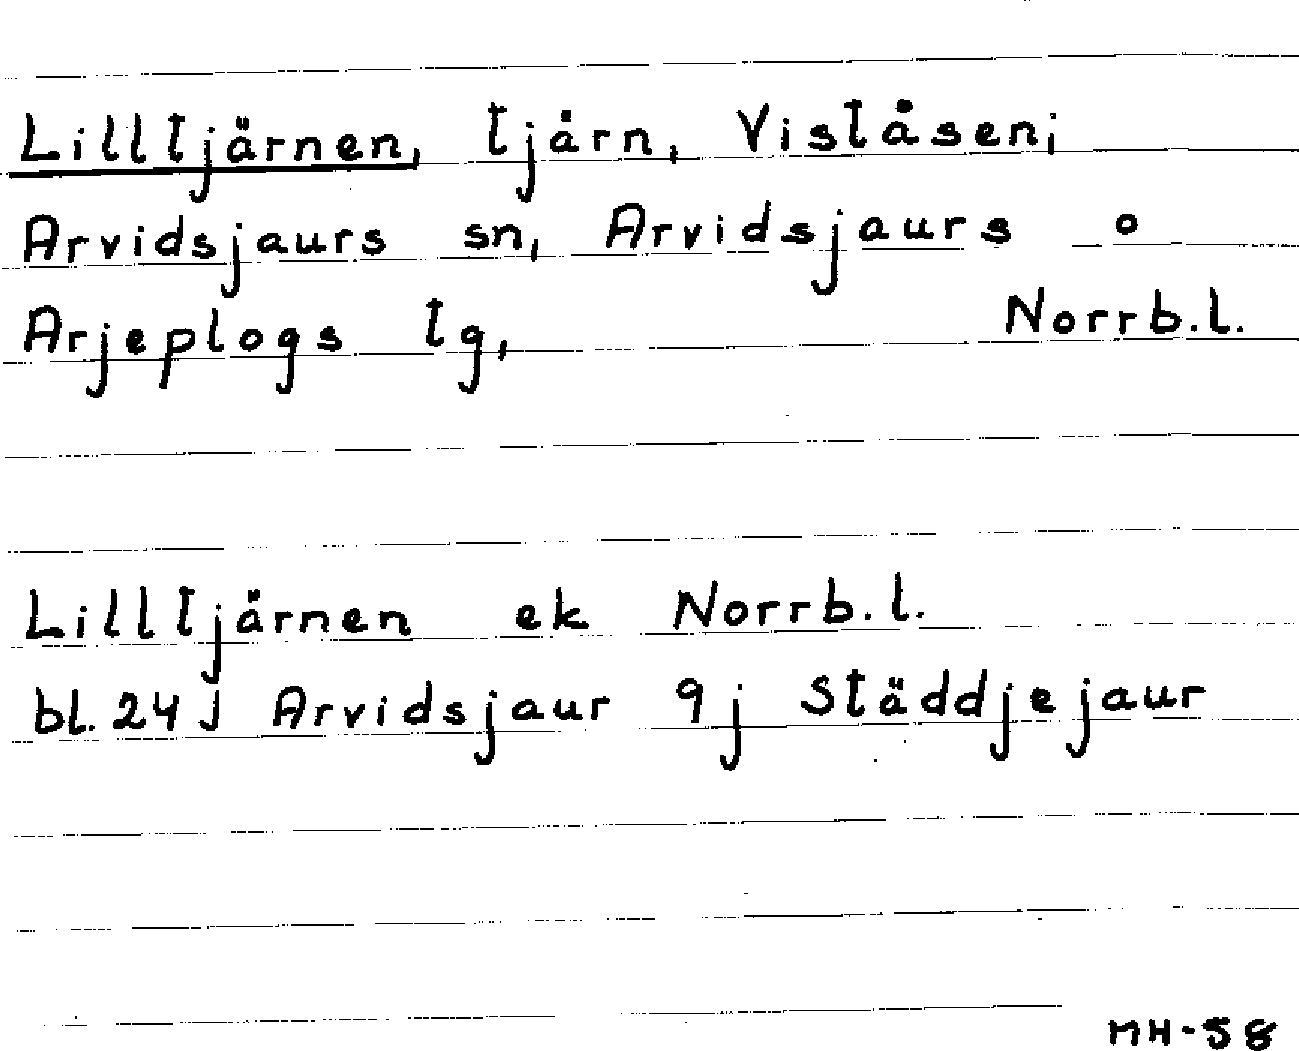 Lilltjärnen, tjärn, Viståsen;
Arvidsjaurs sn, Arvidsjaurs o
Arjeplogs tg, Norrb.l.
Lilltjärnen ek Norrb.l.
bl. 24J Arvidsjaur 9j Städdjejaur
MH-58